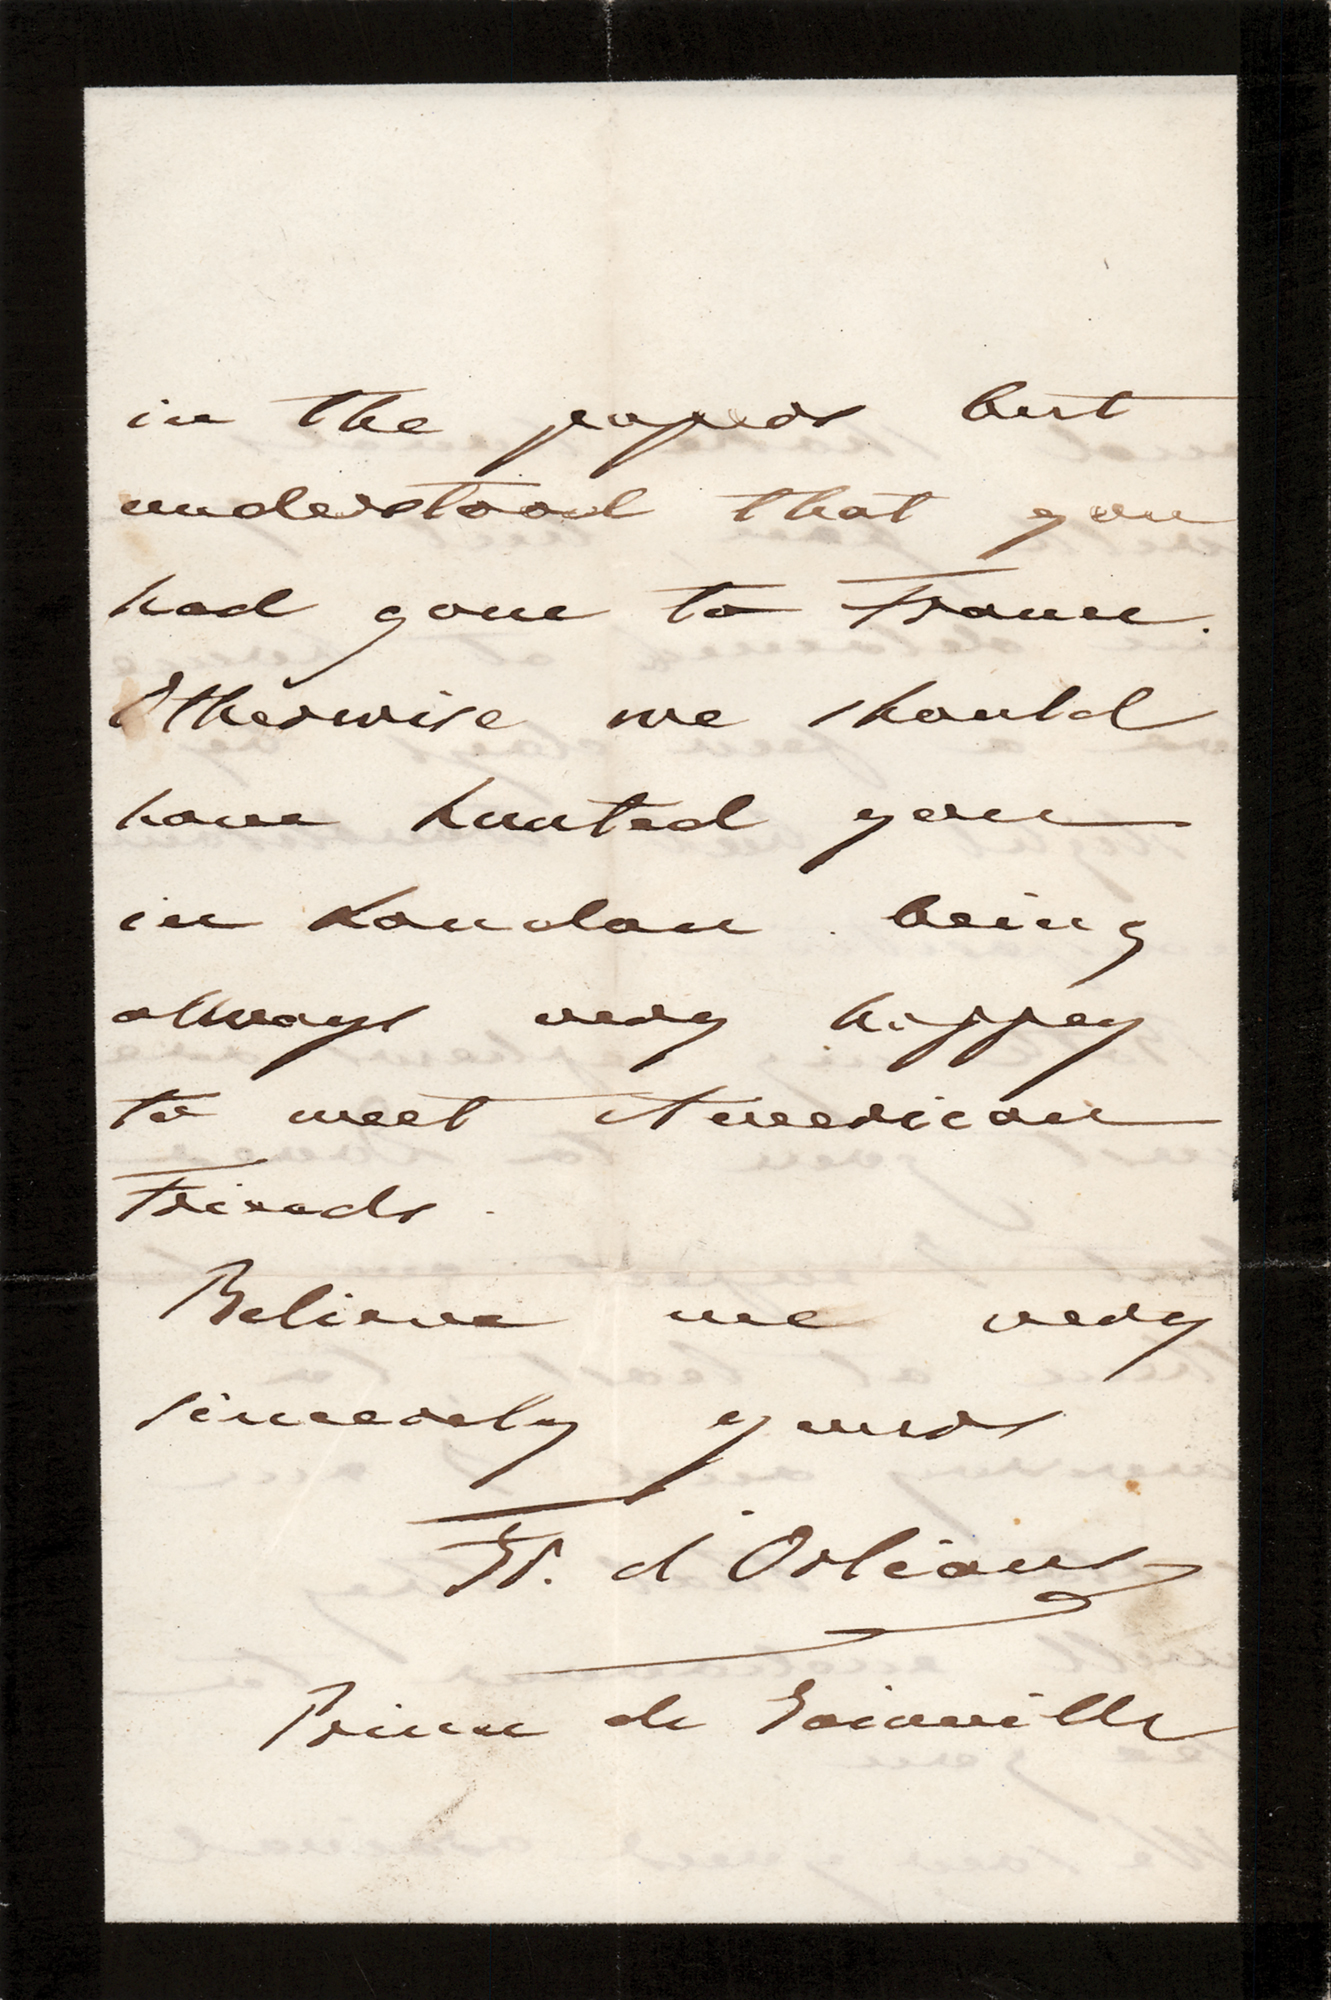 in the papers but
understood that you
had gone to France.
Otherwise we should
have hunted you
in London. being
always very happy
to meet American
Friends.
Believe me very
sincerely yours
Fr. d'Orléans
Prince de Joinville